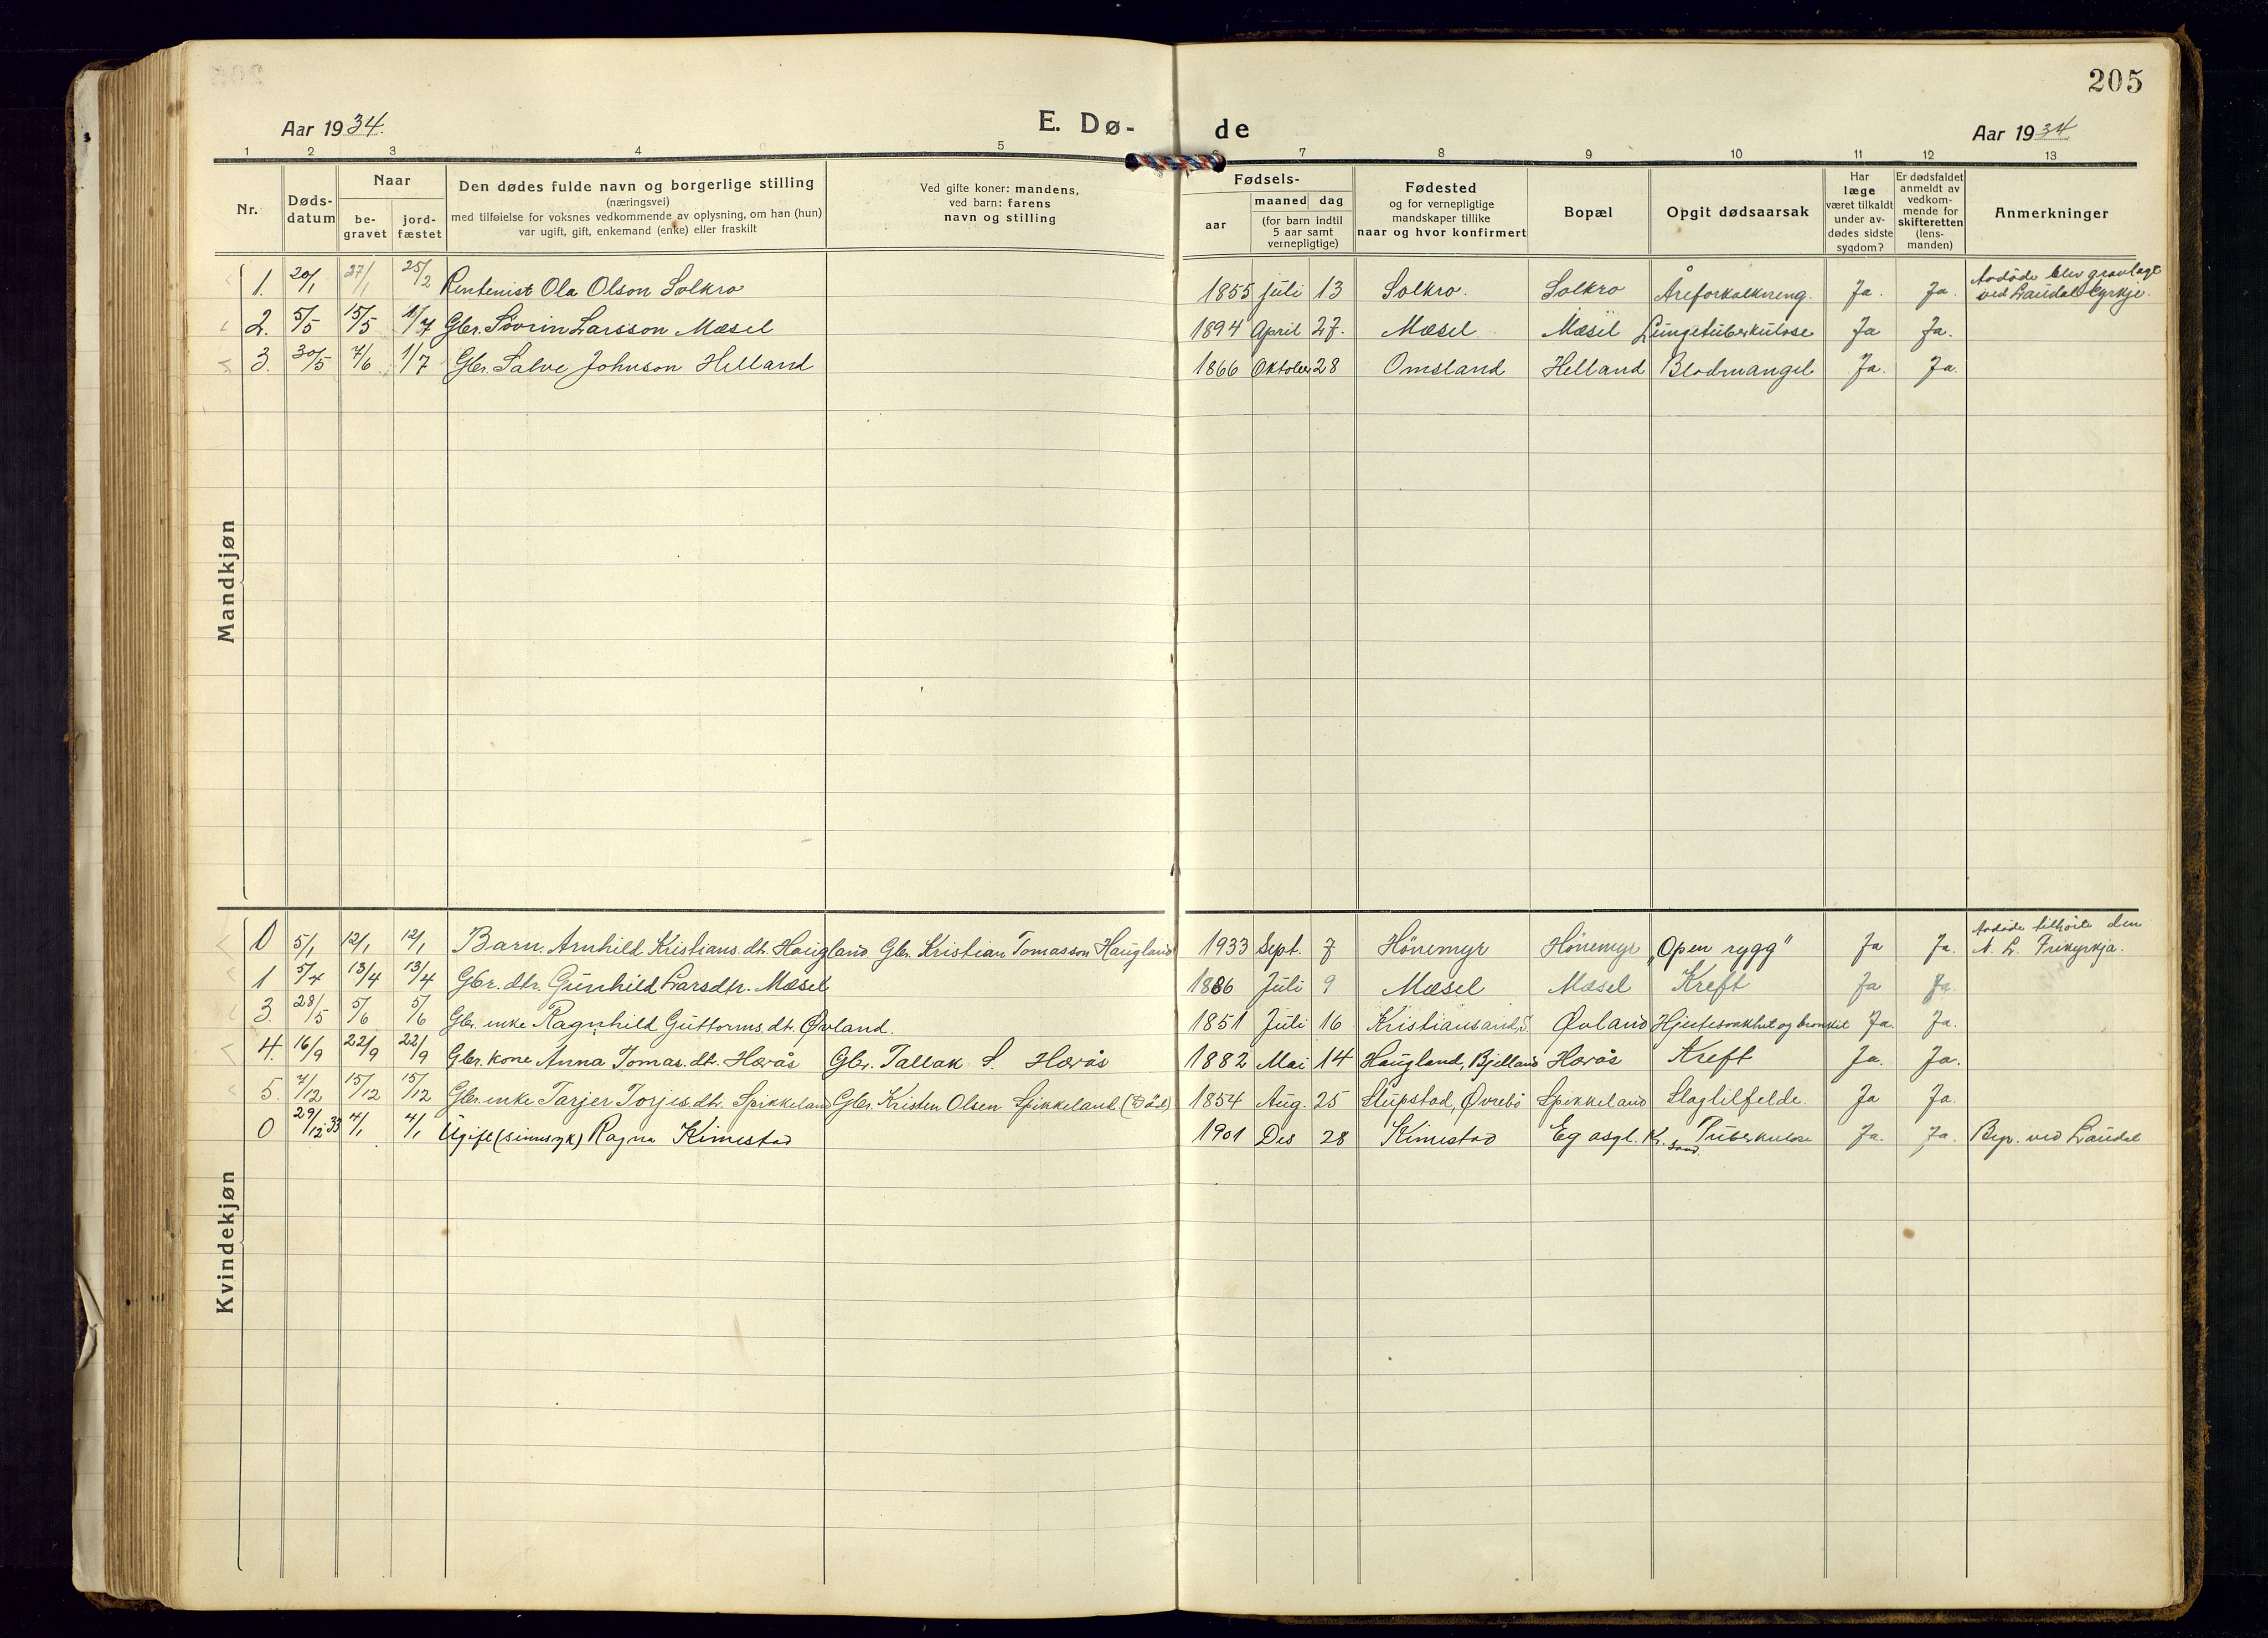 205
Aar 1934.
E. Dø-
de
Aar 1934
1 2 3 4 5 6 7 8 9 10 11 12 13
Nr.
Døds-
datum
Naar
be-
gravet
jord-
fæstet
Den dødes fulde navn og borgerlige stilling
(næringsvei)
med tilføielse for voksnes vedkommende av oplysning, om han (hun)
var ugift, gift, enkemand (enke) eller fraskilt
Ved gifte koner: mandens,
ved barn: farens
navn og stilling
Fødsels-
aar
maaned dag
(for barn indtil
5 aar samt
vernepligtige)
Fødested
og for vernepligtige
mandskaper tillike
naar og hvor konfirmert
Bopæl
Opgit dødsaarsak
Har
læge
været tilkaldt
under av-
dødes sidste
sygdom?
Er dødsfaldet
anmeldt av
vedkom-
mende for
skifteretten
(lens-
manden)
Anmerkninger
Mandkjøn
1. 20/1 27/1 25/2 Rentenist Ola Olson Solkro 1855 juli 13 Solkro. Solkro Åreforkalkning. Ja. Ja. Avdøde blev gravlagt
ved Laudal kyrkje.
2. 5/5 15/5 1/7 Gbr. Sövrin Larsson Mæsel 1894 April 27. Mæsel Mæsel Lungetuberkulose Ja Ja.
3. 30/5 7/6 1/7 Gbr. Salve Johnson Helland 1866 Oktober 28 Omsland Helland Blodmangel Ja. Ja.
Kvindekjøn
0 5/1 12/1 12/1 Barn. Arnhild Kristians.dt. Haugland Gbr. Kristian Tomasson Haugland 1933 Sept. 7 Hönemyr Hönemyr "Open rygg" Ja Ja. Avdøde tilhörte den
N. L. Frikyrkja.
1 5/4 13/4 13/4 Gbr. dtr. Gunhild Larsdtr. Mæsel 1886 Juli 9 Mæsel Mæsel Kreft Ja Ja.
3. 28/5 5/6 5/6 Gbr. enke Ragnhild Guttorms.dt. Øvland. 1851 Juli 16 Kristiansand, S. Øvland Hjertesvakhet og bronkit Ja. Ja.
4. 16/9 22/9 22/9 Gbr. kone Anna Tomas.dt. Hærås Gbr. Tallak S. Hærås 1882 Mai 14 Haugland, Bjelland Hærås Kreft Ja. Ja.
5. 7/12 15/12 15/12 Gbr. enke Tarjer Torjes.dtr. Spikkeland Gbr. Kristen Olsen Spikkeland. (Död) 1854 Aug. 25 Stupstad, Øvrebö Spikkeland Slagtilfelde. Ja Ja.
0 29/12 33 4/1 4/1 Ugift (sinnsyk) Ragna Kimestad 1901 Des 28 Kimestad Eg asyl. Kr.sand. Tuberkulose Ja. Ja. Begr. ved Laudal